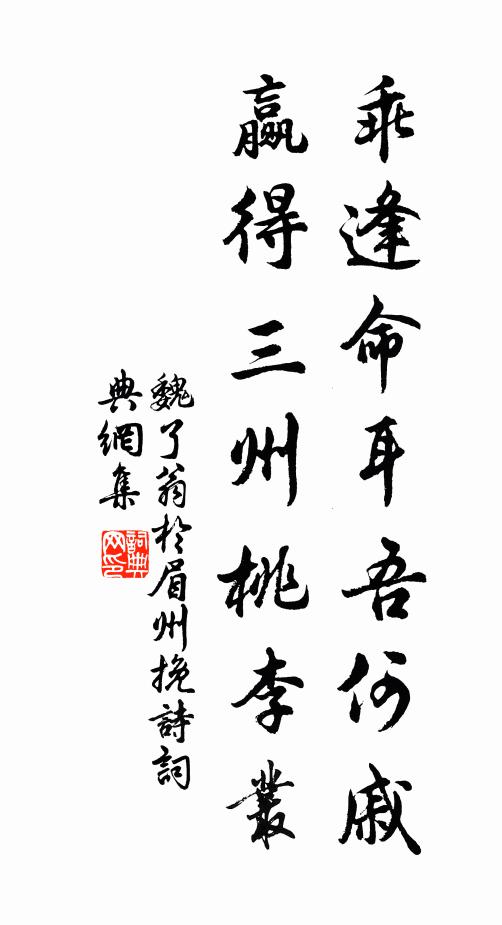 乘逢命耳吾何戚
贏得三州桃李叢
魏了翁於眉州挽詩詞
典網集
詞典
网印